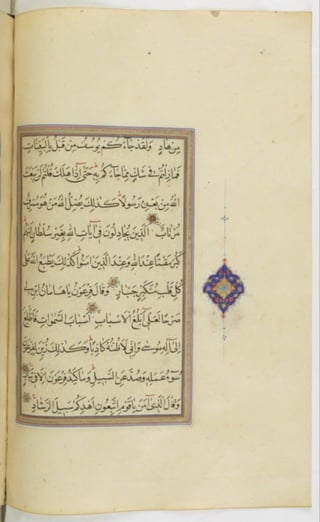 مِنْ هَادٍ وَلَقَدْ جَاءَكُمْ يُوسُفُ مِنْ قَبْلُ بِالْبَيِّنَاتِ
فَمَا زِلْتُمْ فِي شَكٍّ مِمَّا جَاءَكُمْ بِهِ حَتَّى إِذَا هَلَكَ قُلْتُمْ لَنْ يَبْعَثَ
اللَّهُ مِنْ بَعْدِهِ رَسُولًا كَذَلِكَ يُضِلُّ اللَّهُ مَنْ هُوَ مُسْرِفٌ
مُرْتَابٌ الَّذِينَ يُجَادِلُونَ فِي آيَاتِ اللَّهِ بِغَيْرِ سُلْطَانٍ أَتَاهُمْ
كَبُرَ مَقْتًا عِنْدَ اللَّهِ وَعِنْدَ الَّذِينَ آمَنُوا كَذَلِكَ يَطْبَعُ اللَّهُ عَلَى
كُلِّ قَلْبِ مُتَكَبِّرٍ جَبَّارٍ وَقَالَ فِرْعَوْنُ يَا هَامَانُ ابْنِ لِي
صَرْحًا لَعَلِّي أَبْلُغُ الْأَسْبَابَ أَسْبَابَ السَّمَوَاتِ فَأَطَّلِعَ
إِلَى إِلَهِ مُوسَى وَإِنِّي لَأَظُنُّهُ كَاذِبًا وَكَذَلِكَ زُيِّنَ لِفِرْعَوْنَ
سُوءُ عَمَلِهِ وَصُدَّ عَنِ السَّبِيلِ وَمَا كَيْدُ فِرْعَوْنَ إِلَّا فِي تَبَابٍ
وَقَالَ الَّذِي آمَنَ يَا قَوْمِ اتَّبِعُونِ أَهْدِكُمْ سَبِيلَ الرَّشَادِ